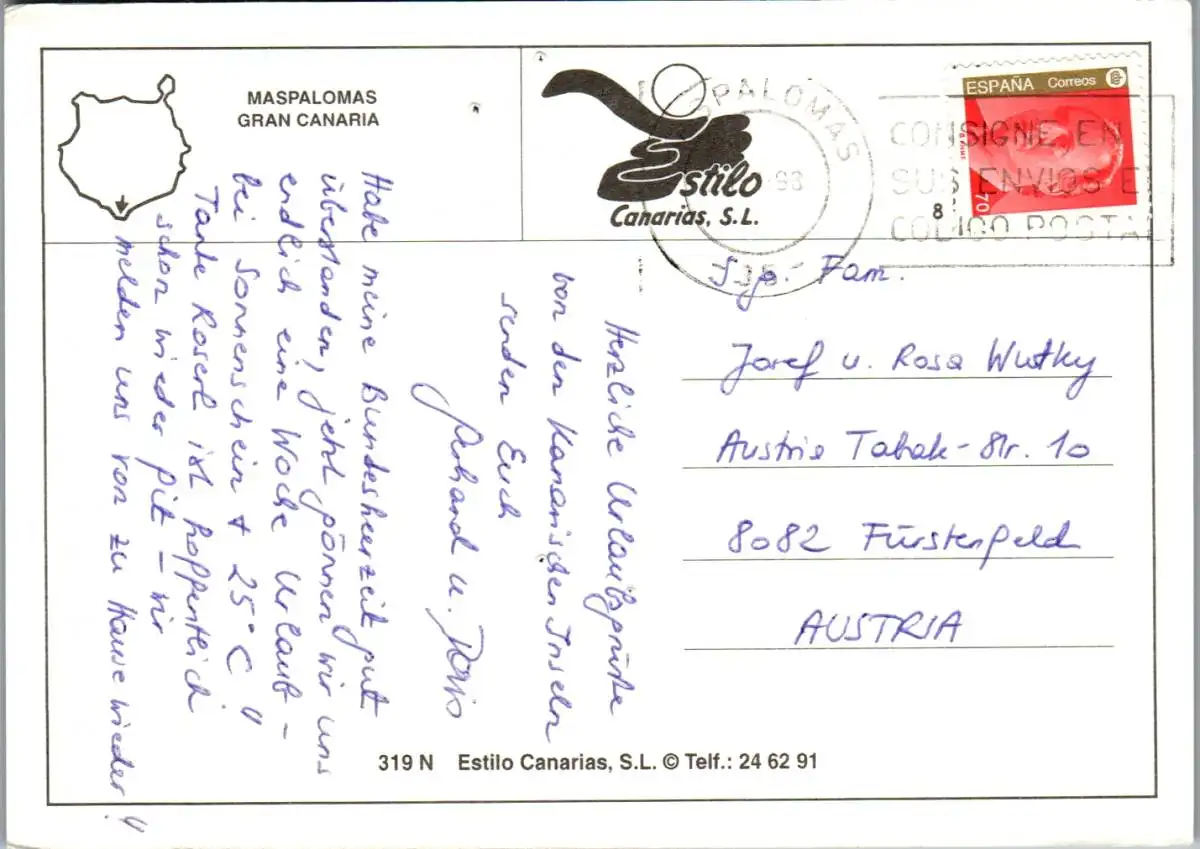 MASPALOMAS
GRAN CANARIA
Estilo
Canarias, S.L.
PALOMAS
98
CONSIGNE EN
SUS ENVIOS EL
CODIGO POSTAL
ESPAÑA Correos
70
8
Herzliche Urlaubsgrüße
von den Kanarischen Inseln
senden Euch
Gerhard u. Doris
Habe meine Bundesheerzeit gut
überstanden, jetzt gönnen wir uns
endlich eine Woche Urlaub –
bei Sonnenschein + 25° C !!
Tante Roserl ist hoffentlich
schon wieder fit – wir
melden uns von zu Hause wieder !!
Sg. Fam.
Josef u. Rosa Wutky
Austria Tabak-Str. 10
8082 Fürstenfeld
AUSTRIA
319 N Estilo Canarias, S.L. © Telf.: 24 62 91